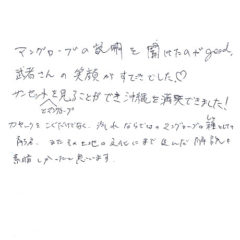 マングローブの説明を聞けたのがgood。
武者さんの笑顔がすてきでした♡
サンセットを見ることができ沖縄を満喫できました！
とマングローブ
カヤックをこぐだけでなく、ならではのマングローブの種としての
またその土地の文化にまで及んだ解説も
素晴しかったと思います。